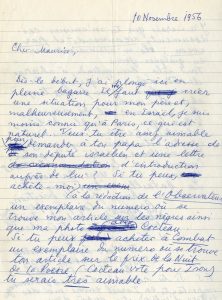 10 Novembre 1956
Cher Maurice,
Dès le début, j'ai plongé ici en
pleine bagarre. Il faut créer
une situation pour mon père et,
malheureusement, en Israël, je suis
moins connu qu'à Paris, ce qui est
naturel. Veux-tu être assez aimable
pour demander à ton papa l'adresse de
son député israëlien et une lettre
d'introduction
auprès de leur? Si tu peux,
achète-moi
la rédaction de l'Observateur
un exemplaire du numéro où se
trouve mon article sur les nègres ainsi
que ma photo Cocteau
Si tu peux acheter à Combat
un exemplaire numéro où se trouve
ton article sur le prix de la Nuit
de la Poésie, Cocteau vote pour Isou,
tu serais très aimable